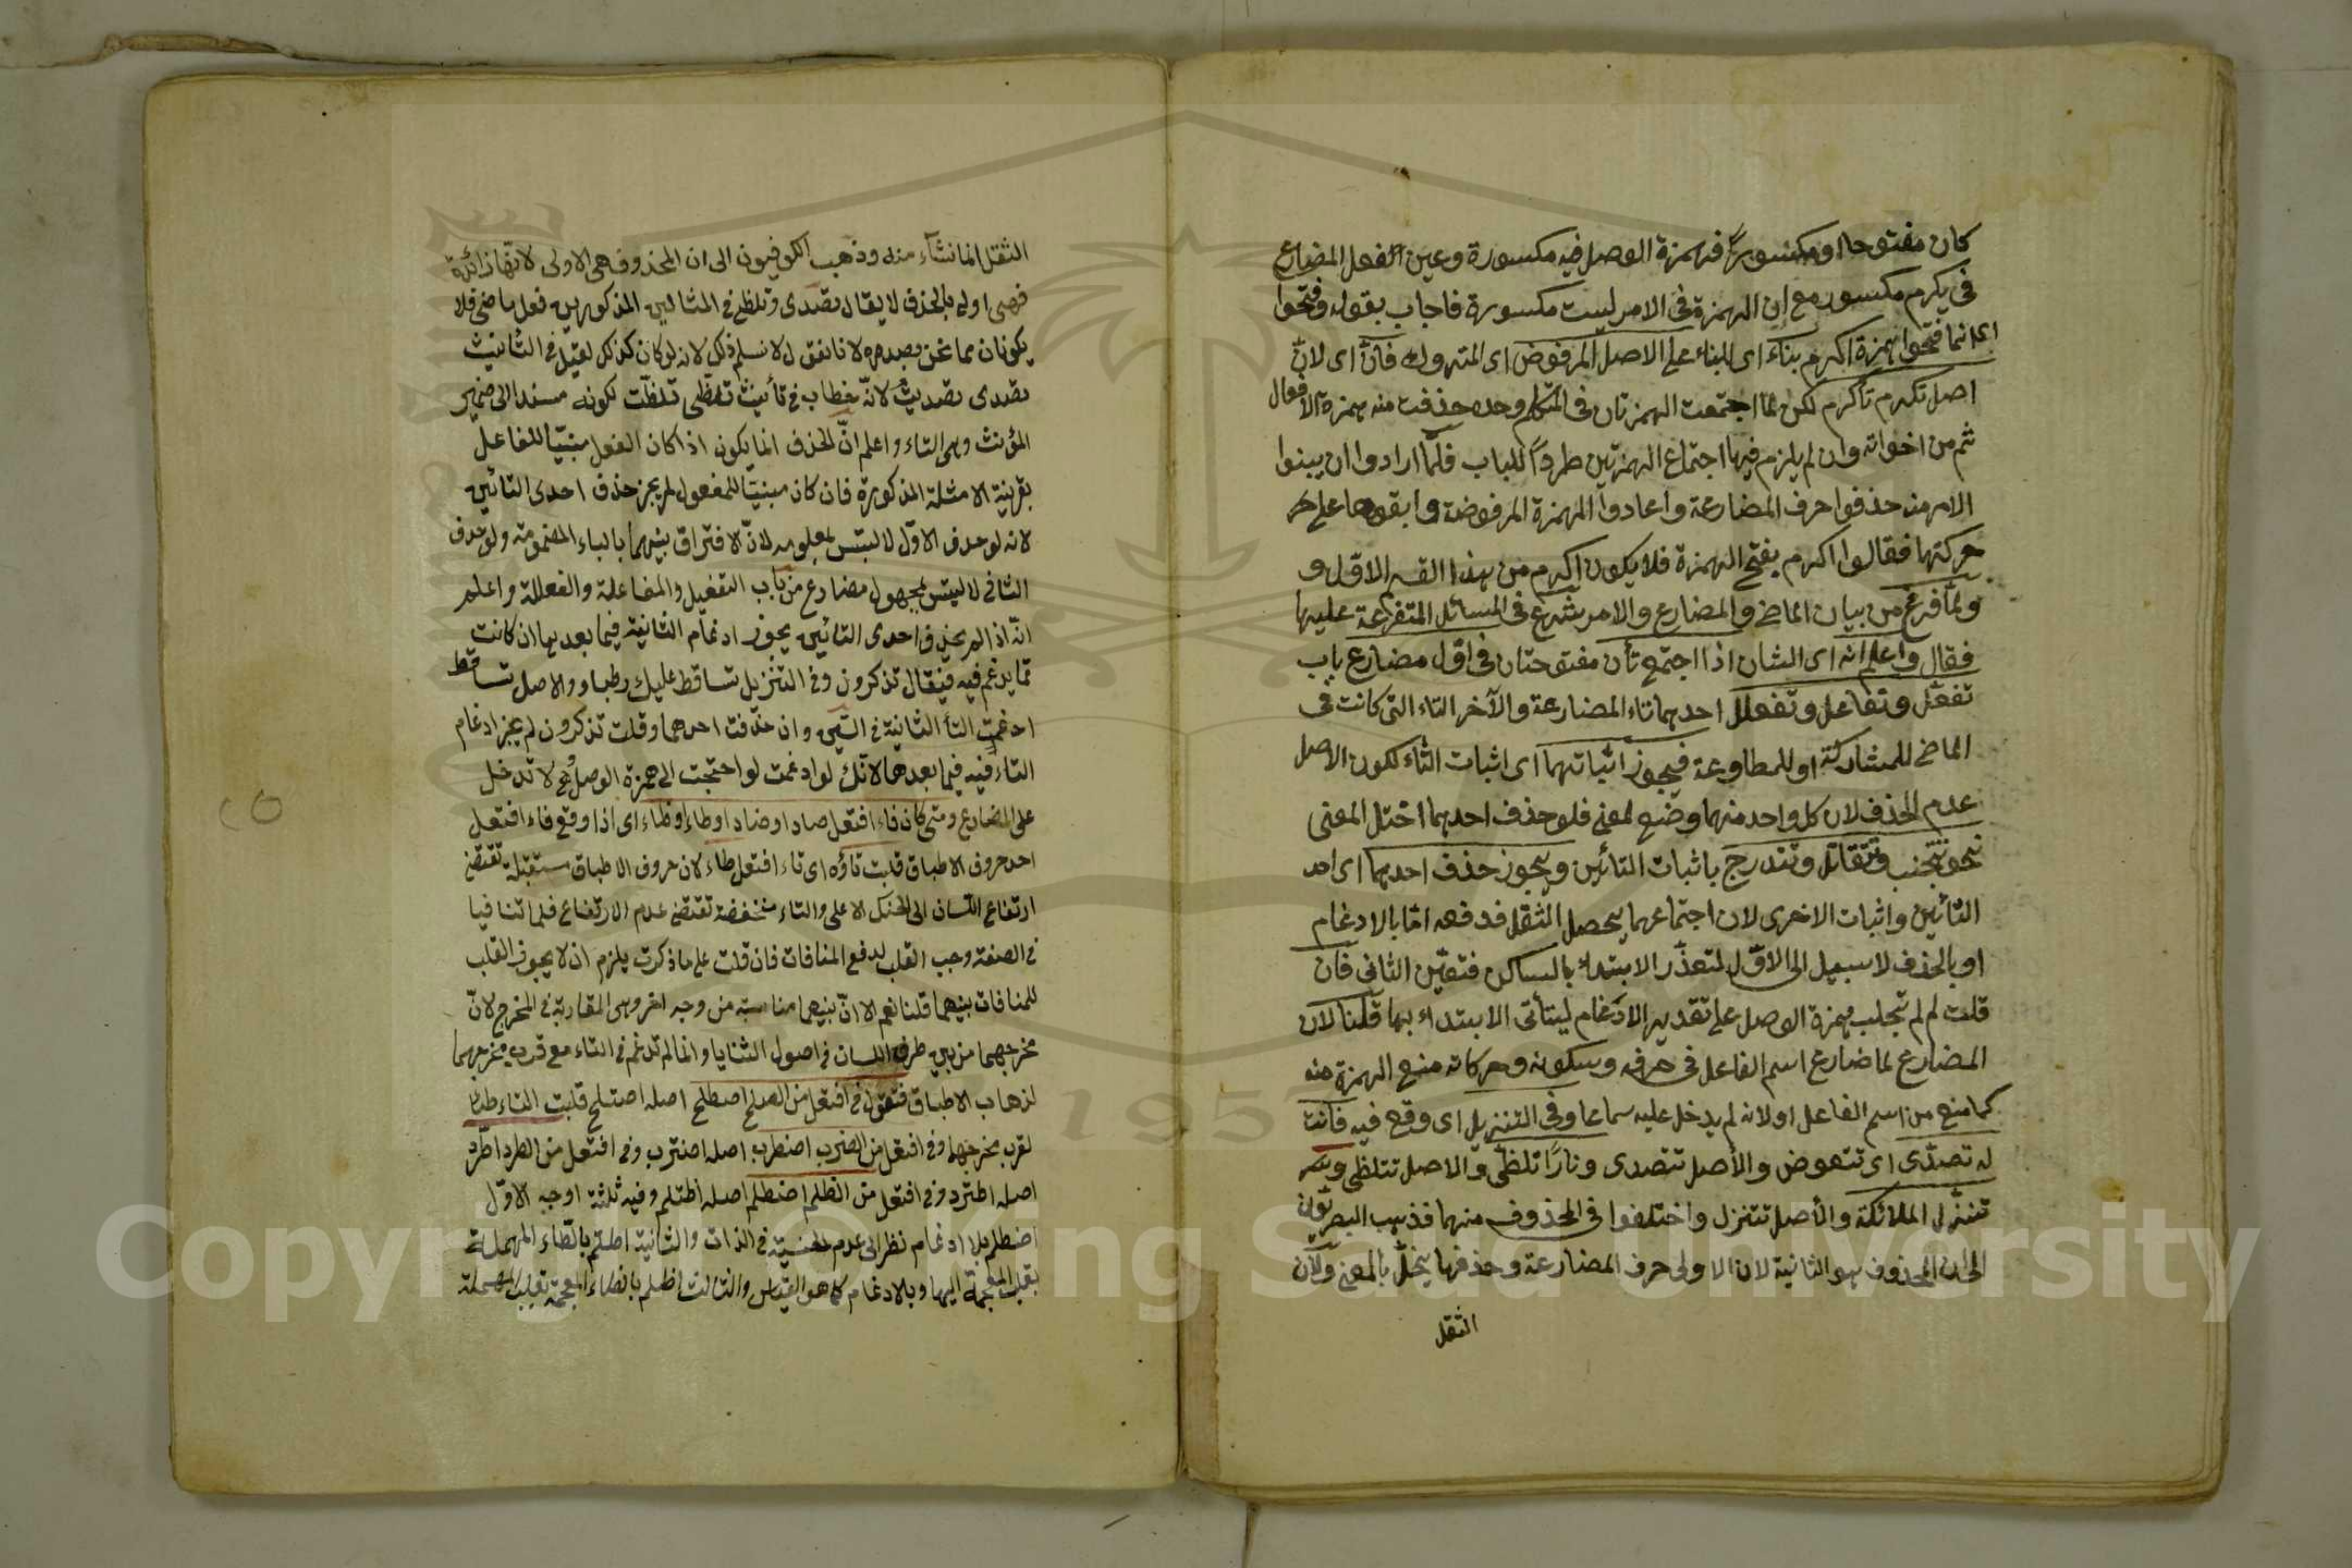 كان مفتوحا او مكسورا فهمزة الوصل فيه مكسورة وعين الفعل المضارع
فى يكرم مكسور مع ان الهمزة فى الامر ليست مكسورة فاجاب بقوله وفتحوا
اى انما فتحوا همزة اكرم بناء اى للبناء على الاصل المرفوض اى المتروك فان اى لان
اصل تكرم تأكرم لكن لما اجتمعت الهمزتان فى المتكلم وحده حذفت منه همزة الافعال
ثم من اخواته وان لم يلزم فيها اجتماع الهمزتين طردا للباب فلما ارادوا ان يبنوا
الامر منه حذفوا حرف المضارعة واعادوا الهمزة المرفوضة وابقوها على
حركتها فقالوا اكرم بفتح الهمزة فلا يكون اكرم من هذا القسم الاول و
ولما فرغ من بيان الماضى والمضارع والامر شرع فى المسائل المتفرعة عليها
فقال واعلم انه اى الشان اذا اجتمع تأن مفتوحتان فى اول مضارع باب
تفعل وتفاعل وتفعلل احدهما تاء المضارعة والآخر التاء التى كانت فى
الماضى للمشاركة او للمطاوعة فيجوز اثباتهما اى اثبات التاء لكون الاصل
عدم الحذف لان كل واحد منهما وضع لمعنى فلو حذف احدهما اختل المعنى
نحو تتجنب وتتقاتل وتتدرج باثبات التائين ويجوز حذف احدهما اى احد
التائين واثبات الاخرى لان اجتماعهما يحصل الثقل فدفعه اما بالادغام
او بالحذف لا سبيل الى الاول لتعذر الابتداء بالساكن فتعين الثانى فان
قلت لم لم تجلب همزة الوصل على تقدير الادغام ليتأتى الابتداء بها قلنا لان
المضارع لما ضارع اسم الفاعل فى حرفه وسكونه وحركاته منع الهمزة منه
كما منع من اسم الفاعل او لانه لم يدخل عليه سماعا وفى التنزيل اى وقع فيه فانت
له تصدى اى تتعوض والأصل تتصدى ونارا تلظى والاصل تتلظى و
تنزل الملائكة والأصل تتنزل واختلفوا فى المحذوف منهما فذهب البصريون
الى ان المحذوف هو الثانية لان الاولى حرف المضارعة وحذفها يخل بالمعنى ولان
الثقل
الثقل انما نشاء منه وذهب الكوفيون الى ان المحذوف هى الاولى لانها زائدة
فهى اولى بالحذف لا يقال تصدى وتلظى فى المثالين المذكورين فعل ماض فلا
يكونان مما نحن بصدده لانا نقول لا نسلم ذلك لانه لو كان كذلك لقيل فى التأنيث
تصدى تصديت لانه خطاب فى تأنيث تلظى تلظت لكونه مسندا الى ضمير
المؤنث وهى التاء واعلم ان الحذف انما يكون اذا كان الفعل مبنيا للفاعل
بقرينة الامثلة المذكورة فان كان مبنيا للمفعول لم يجز حذف احدى التائين
لانه لو حذف الاول لالتبس بمعلومه لان الافتراق بينهما بالتاء المضمومة ولو حذف
الثانى لالتبس بمجهول مضارع من باب التفعيل والمفاعلة والفعللة واعلم
انه اذا لم يحذف احدى التائين يجوز ادغام الثانية فيما بعدها ان كانت
مما يدغم فيه فيقال تذكرون وفى التنزيل تساقط عليك رطبا والاصل تتساقط
ادغمت التاء الثانية فى السين وان حذفت احدهما وقلت تذكرون لم يجز ادغام
التاء فيه فيما بعدها لانك لو ادغمت لو احتجت الى همزة الوصل وهى لا تدخل
على المضارع ومتى كان فاء افتعل صادا او ضادا او طاء او ظاء اى اذا وقع فاء افتعل
احد حروف الاطباق قلبت تاؤه اى تاء افتعل طاء لان حروف الاطباق مستعلية تقتضى
ارتفاع اللسان الى الحنك الاعلى والتاء منخفضة تقتضى عدم الارتفاع فلما تنافيا
فى الصفة وجب القلب لدفع المنافات فان قلت على ما ذكرت يلزم ان لا يجوز القلب
للمنافات بينهما قلنا نعم الا ان بينهما مناسبة من وجه اخر وهى المقاربة فى المخرج لان
مخرجهما من بين طرف اللسان فى اصول الثنايا وانما لم تدغم فى التاء مع قرب مخرجهما
لذهاب الاطباق فتقول فى افتعل من الصلح اصطلح اصله اصتلح قلبت التاء طاء
لقرب مخرجهما وفى افتعل من الضرب اضطرب اصله اضترب وفى افتعل من الطرد اطرد
اصله اطترد وفى افتعل من الظلم اضطلم اصله اظتلم وفيه ثلثة اوجه الاول
اضطلم بلا ادغام نظرا الى عدم الجنسية فى الذات والثانية اطلم بالطاء المهملة
بقلب المعجمة اليها وبالادغام كما هو القياس والثالث اظلم بالظاء المعجمة بقلب المهملة
Copyright © King Saud University
195